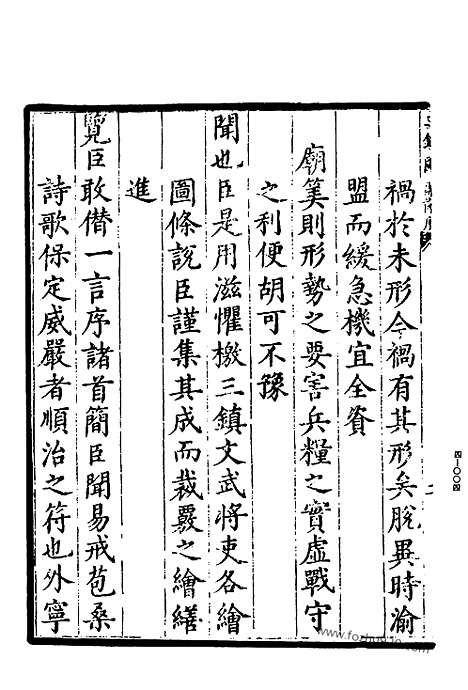 禍於未形今禍有其形矣脫異時渝
盟而緩急機宜全資
廟筭則形勢之要害兵糧之實虛戰守
之利便胡可不豫
聞也臣是用滋懼檄三鎮文武將吏各繪
圖條說臣謹集其成而裁覈之繪繕
進
覽臣敢僣一言序諸首簡臣聞易戒苞桑
詩歌保定威嚴者順治之符也外寧
四—〇〇四